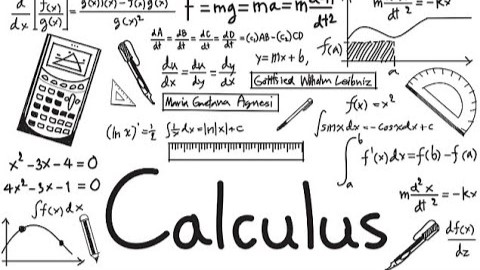 d/dx [f(x)/g(x)] = g(x)f'(x) - f(x)g'(x) / g(x)²
f = mg = ma = m d²h/dt²
m d²x/dt² = -kx
dA/dt = dB/dt = dC/dt = dD/dt = (c₁)AB - (c₂)CD
f(A)
a
y = mx + b,
du/dx = du/dy = dy/dx
Gottfried Wilhelm Leibniz
Maria Gaetana Agnesi
f(x) = x²
(ln x)' = 1/x
∫ 1/x dx = ln|x| + c
∫ sinx dx = -cosx dx + c
∫ₐᵇ f'(x)dx = f(b) - f(A)
x² - 3x - 4 = 0
4x² - 3x - 1 = 0
∫f(x)dx
m d²x/dt² = -kx
Calculus
df(x)/dz